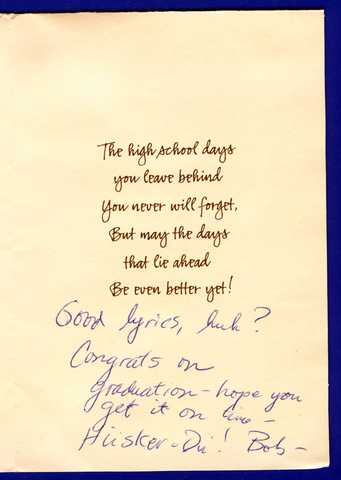 The high school days
you leave behind
You never will forget,
But may the days
that lie ahead
Be even better yet!
Good lyrics, huh?
Congrats on
graduation - hope you
get it on
Hüsker-Dü! Bob-